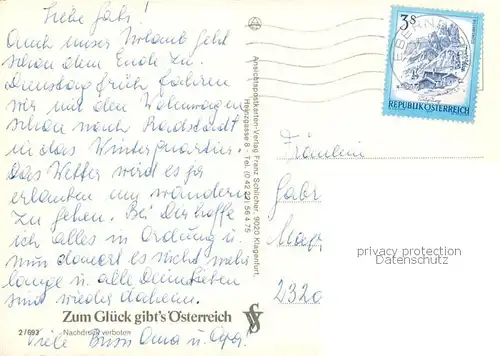 Liebe Gabi!
Auch unser Urlaub geht
schon dem Ende zu.
Dienstag früh fahren
wir mit dem Wohnwagen
schon nach Radstadt
in das Winterquartier.
Das Wetter wird es ja
erlauben um wandern
zu gehen. Bei Dir hoffe
ich alles in Ordnung u.
nun dauert es nicht mehr
lange u. alle Deine Lieben
sind wieder daheim.
Zum Glück gibt's Österreich
2/693 Nachdruck verboten
Viele Bussi Oma u. Opa!
Ansichtspostkarten-Verlag Franz Schilcher, 9020 Klagenfurt,
Heinzgasse 8 - Tel. (0 42 22) 56 4 75
3S
REPUBLIK ÖSTERREICH
Fräulein
Gabr
232
privacy protection
Datenschutz